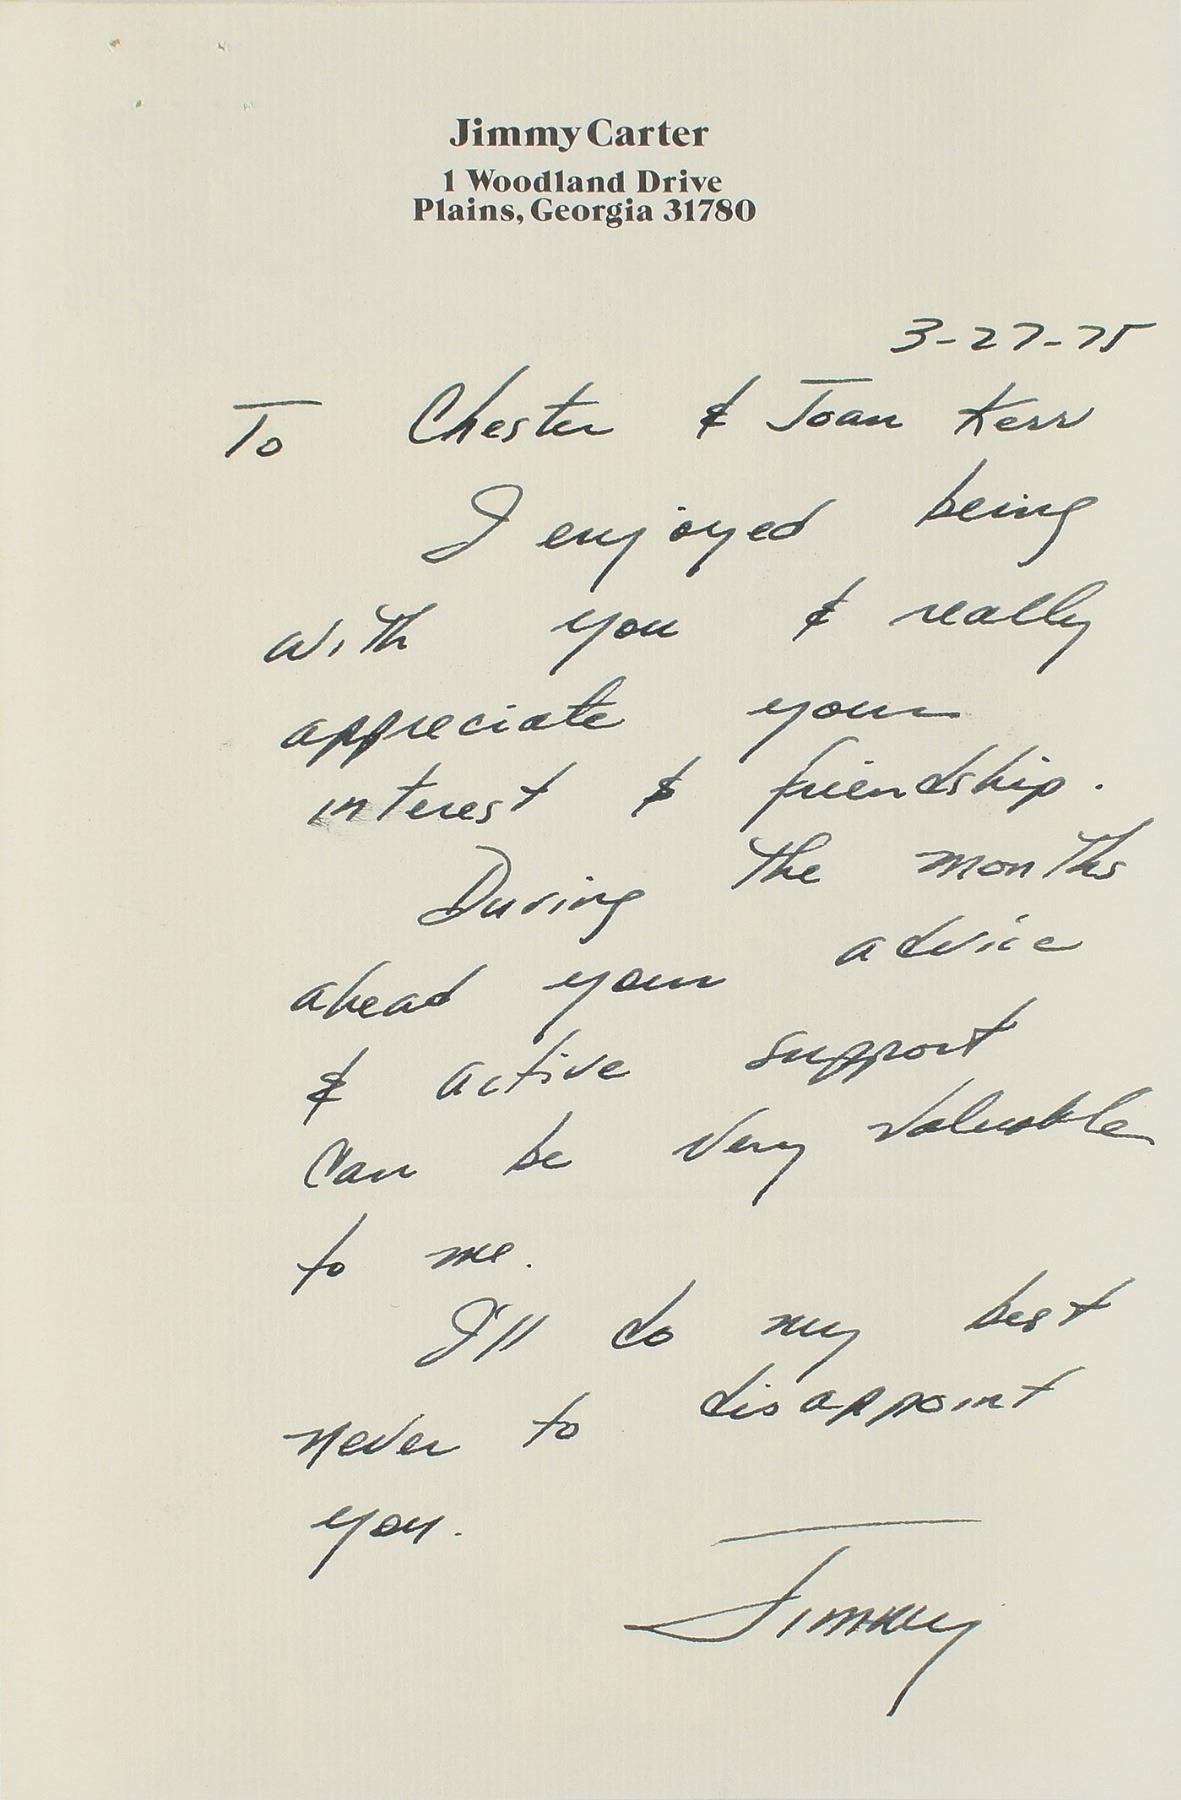 Jimmy Carter
1 Woodland Drive
Plains, Georgia 31780
3-27-75
To Chester & Joan Kerr
I enjoyed being
with you & really
appreciate your
interest & friendship.
During the months
ahead your advice
& active support
can be very valuable
to me.
I'll do my best
never to disappoint
you.
Jimmy